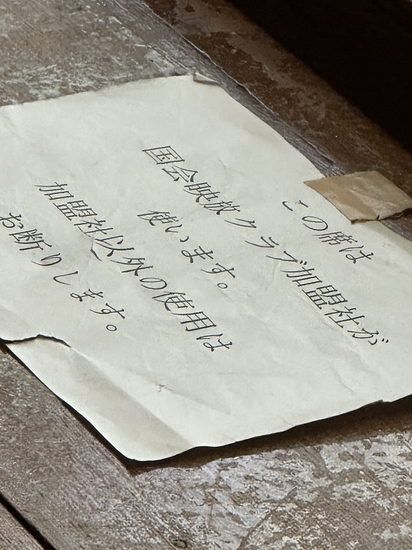 この席は
国会映放クラブ加盟社が
使います。
加盟社以外の使用は
お断りします。